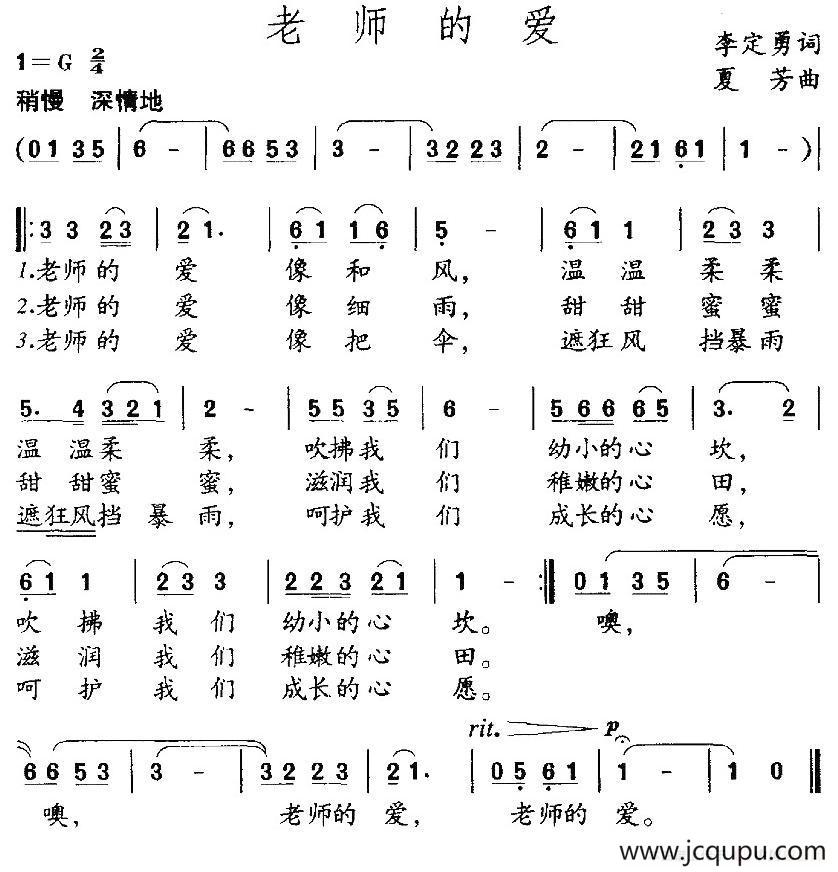 老师的爱
李定勇词
1=G 2/4
夏 芳曲
稍慢 深情地
(01 35 | 6 - | 66 53 | 3 - | 323 23 | 2 - | 21 61 | 1 - )|
‖: 3 3 23 | 21. | 61 16 | 5 - | 61 1 | 23 3 |
1.老师的 爱 像 和 风, 温 温 柔 柔
2.老师的 爱 像 细 雨, 甜 甜 蜜 蜜
3.老师的 爱 像 把 伞, 遮狂风 挡暴雨
5. 4 321 | 2 - | 55 35 | 6 - | 566 65 | 3. 2 |
温 温柔 柔, 吹拂我 们 幼小的心 坎,
甜 甜蜜 蜜, 滋润我 们 稚嫩的心 田,
遮狂风挡 暴 雨, 呵护我 们 成长的心 愿,
61 1 | 23 3 | 223 21 | 1 - :‖ 01 35 | 6 - |
吹 拂 我 们 幼小的心 坎。 噢,
滋 润 我 们 稚嫩的心 田。
呵 护 我 们 成长的心 愿。
rit. p
66 53 | 3 - | 32 23 | 21. | 05 61 | 1 - | 1 0 ‖
噢, 老师的 爱, 老师的 爱。
www.jcqupu.com